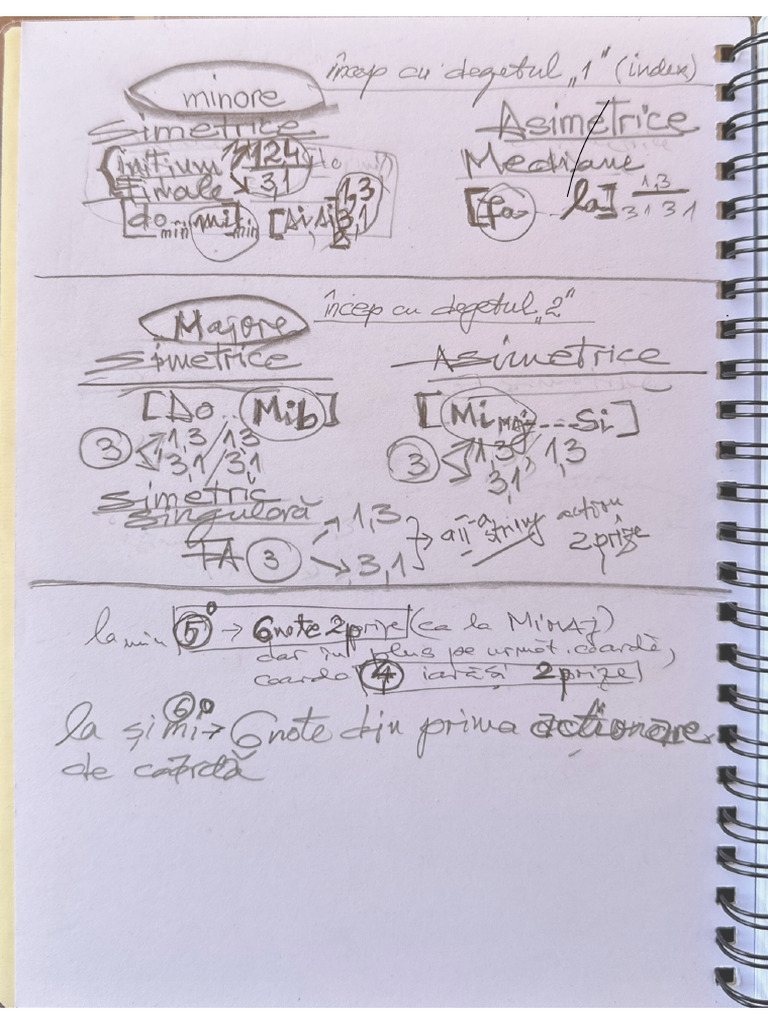 încep cu degetul „1" (index)
minore
Simetrice
Asimetrice
initium 124
Mediane
finale 3,1
1,3
[do min mi min [Si Si 3,1
[fa... la] 1,3
31 31
încep cu degetul „2"
Majore
Simetrice
Asimetrice
[Do.. Mib]
[Mi MAJ --- Si]
3 1,3 / 1,3
3,1 / 3,1
3 1,3 1,3
3,1
simetric
singulară
FA 3 1,3
3,1
string
2 prize
la min 5° → 6 note 2 prize (ca la Mi MAJ)
dar în plus pe următ. coardă,
coarda 4 iarăși 2 prize
la și mi 6° → 6 note din prima acționare
de coardă